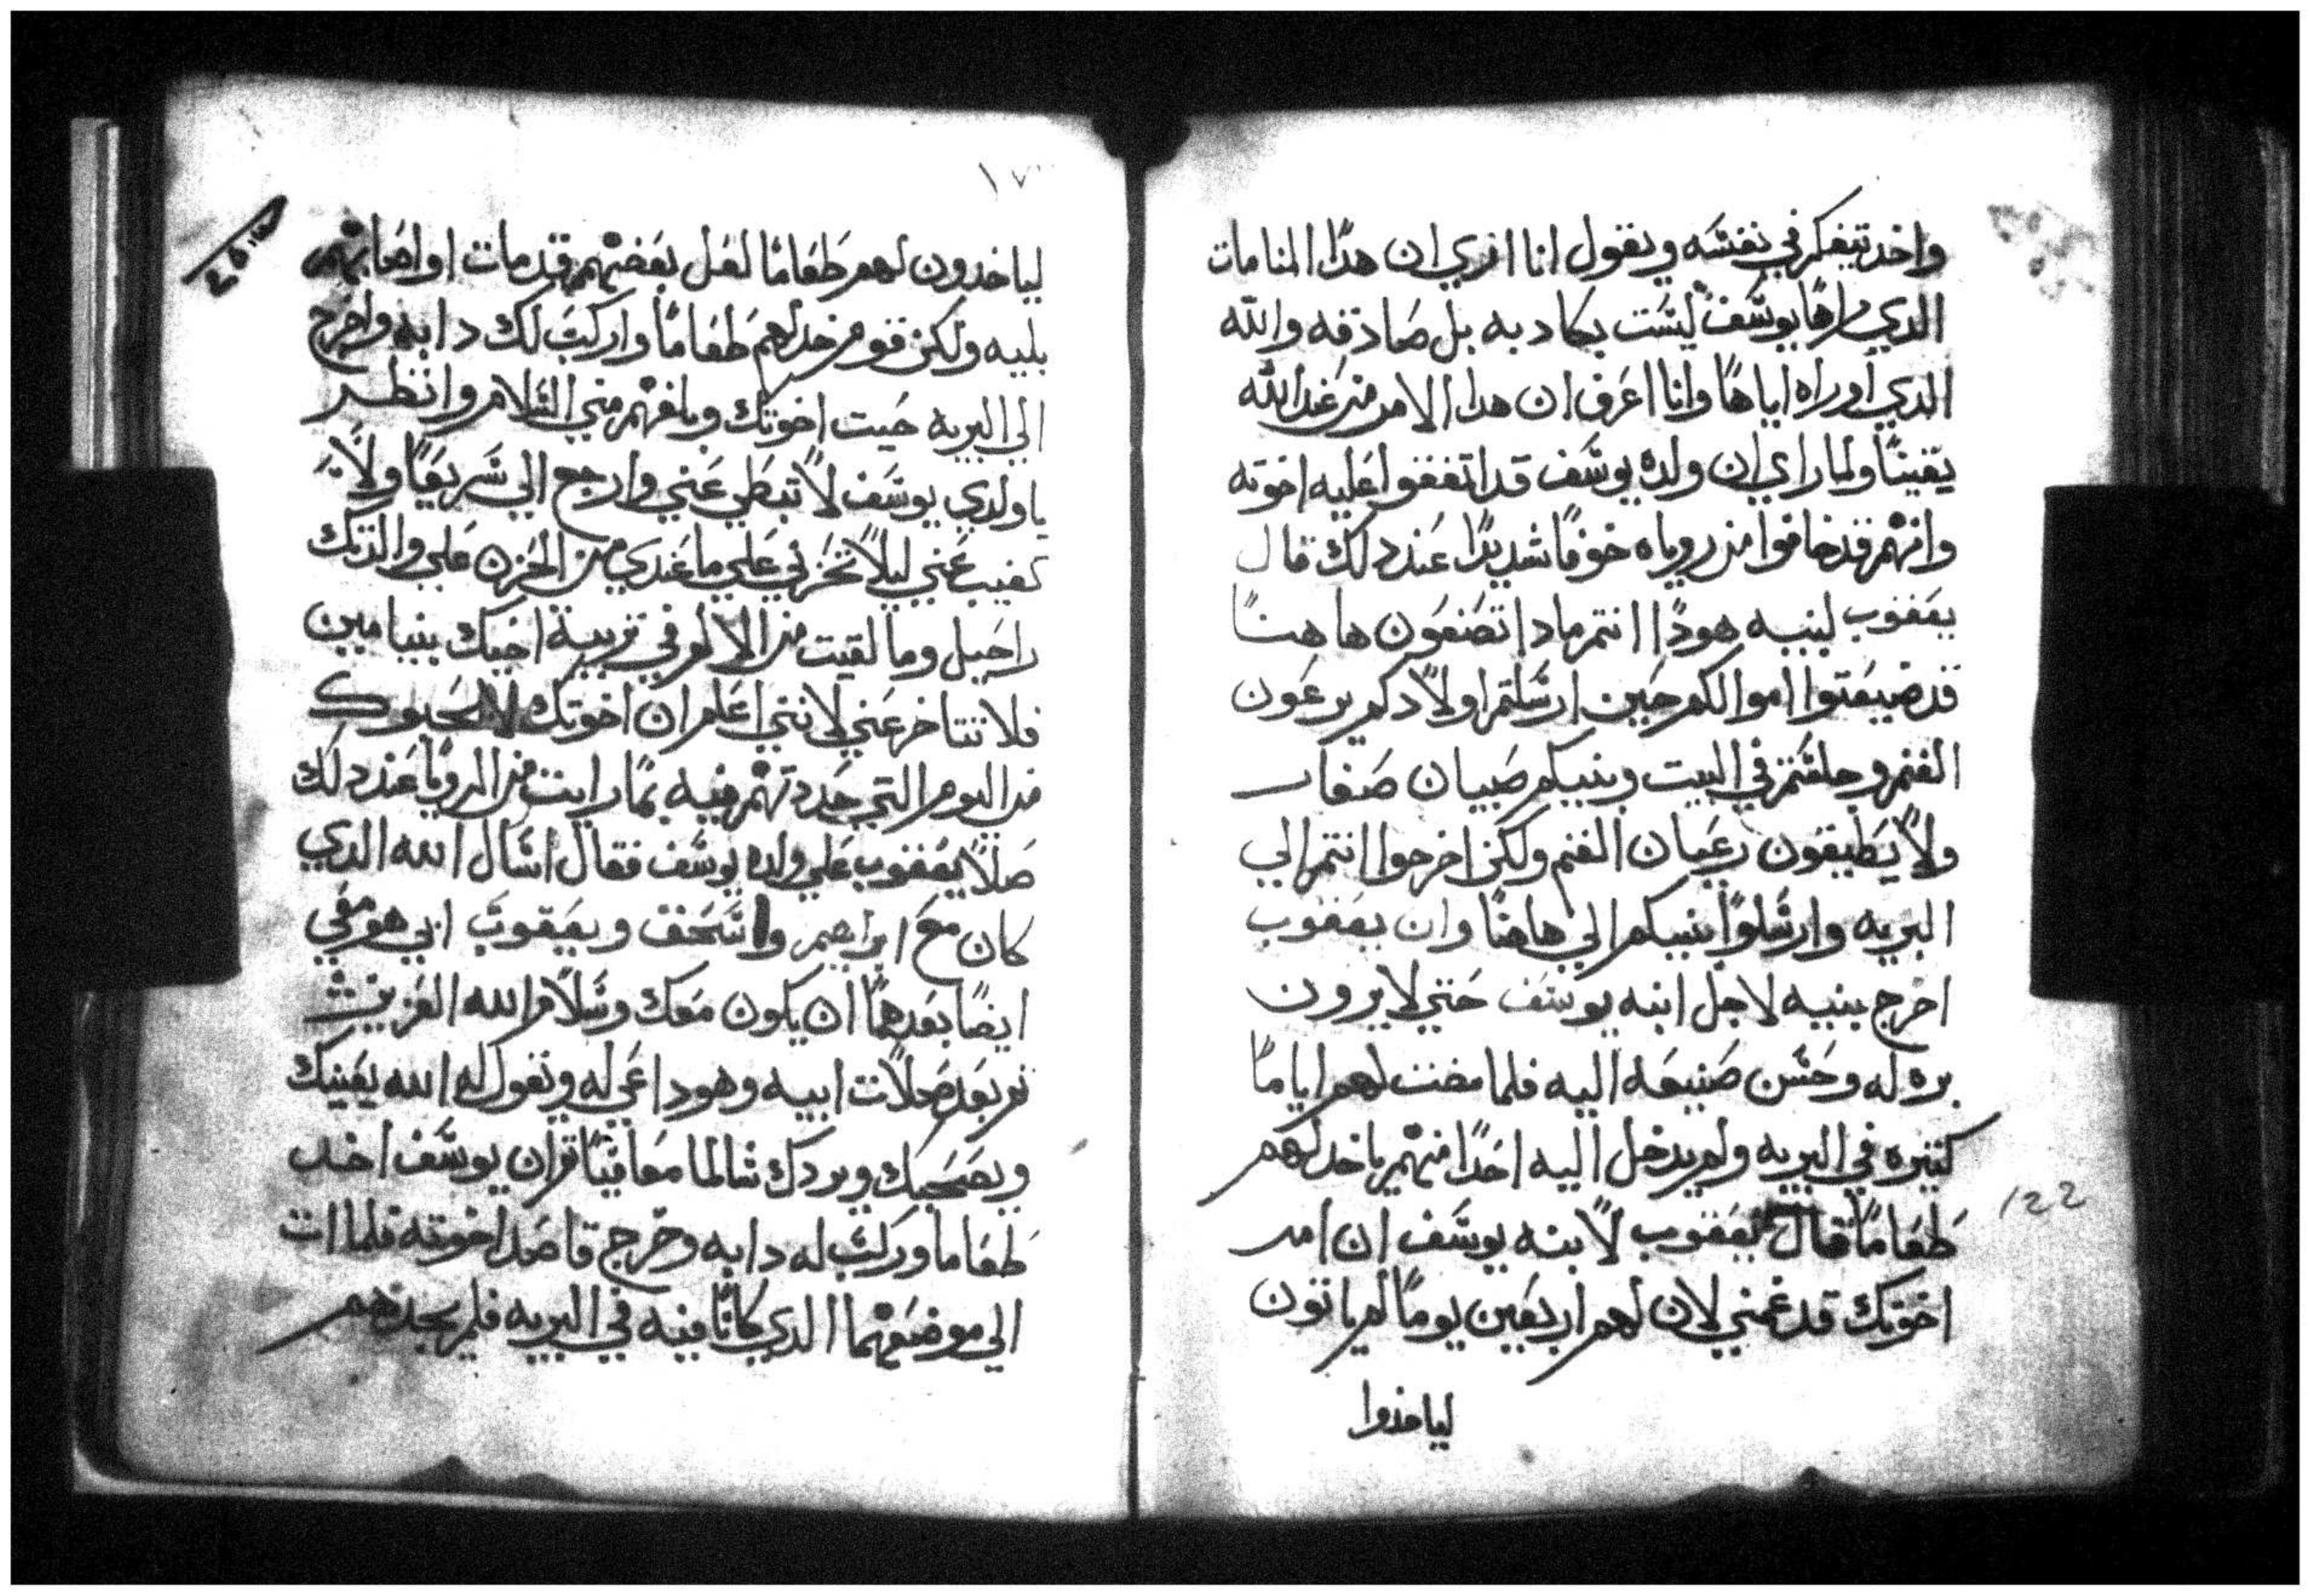 واخد تيفكر في نفسه ويقول انا ادري ان هدا المنامات
الدي راها يوسف ليست بكادبه بل صادقه والله
الدي اوراه اياها وانا اعرف ان هدا الامر من عند الله
يقينا ولما راي ان ولده يوسف قد اتفقوا عليه اخوته
وانهم قد خافوا من روياه خوفا شديدا عند دلك قال
يعقوب لبنيه هودا انتم مادا تصنعون هاهنا
قد ضيعتوا اموالكم حين ارسلتم اولادكم يرعون
الغنم وجلستم في البيت وبنيكم صبيان صغار
ولا يطيقون رعيان الغنم ولكن اخرجوا انتم الي
البريه وارسلوا بنيكم الي هاهنا وان يعقوب
اخرج بنيه لاجل ابنه يوسف حتي لا يرون
بره له وحسن صنيعه اليه فلما مضت لهم اياما
كتيره في البريه ولم يدخل اليه احدا منهم ياخد لهم
طعاما فقال يعقوب لابنه يوسف ان امر
اخوتك قد غمني لان لهم اربعين يوما لم ياتون
لياخدوا
122
١٧
لياخدون لهم طعاما لعل بعضهم قد مات او اصابتهم
بليه ولكن قوم خد لهم طعاما واركب لك دابه واخرج
الي البريه حيت اخوتك وبلغهم مني السلام وانظر
يا ولدي يوسف لا تبطي عني وارجع الي سريعا ولا
تغيب عني ليلا تحزني علي ما عندي من الحزن علي والدتك
راحيل وما لقيت من الالم في تربية اخيك بنيامين
فلا تتاخر عني لانني اعلم ان اخوتك لا يحبوك
من اليوم التي حددتهم فيه بما رايت من الرويا عند دلك
صلا يعقوب علي ولده يوسف فقال اسال الله الدي
كان مع ابراهيم واسحق ويعقوب ابي هو معي
ايضا بعدهما ان يكون معك وسلام الله العزيز
تم بعد صلات ابيه وهو داعي له ويقول له الله يعينك
ويصحبك ويردك سالما معافيا تم ان يوسف اخد
طعاما وركب له دابه وخرج قاصدا اخوته فلما ات
الي موضعهما الدي كانا فيه في البريه فلم يجدهم